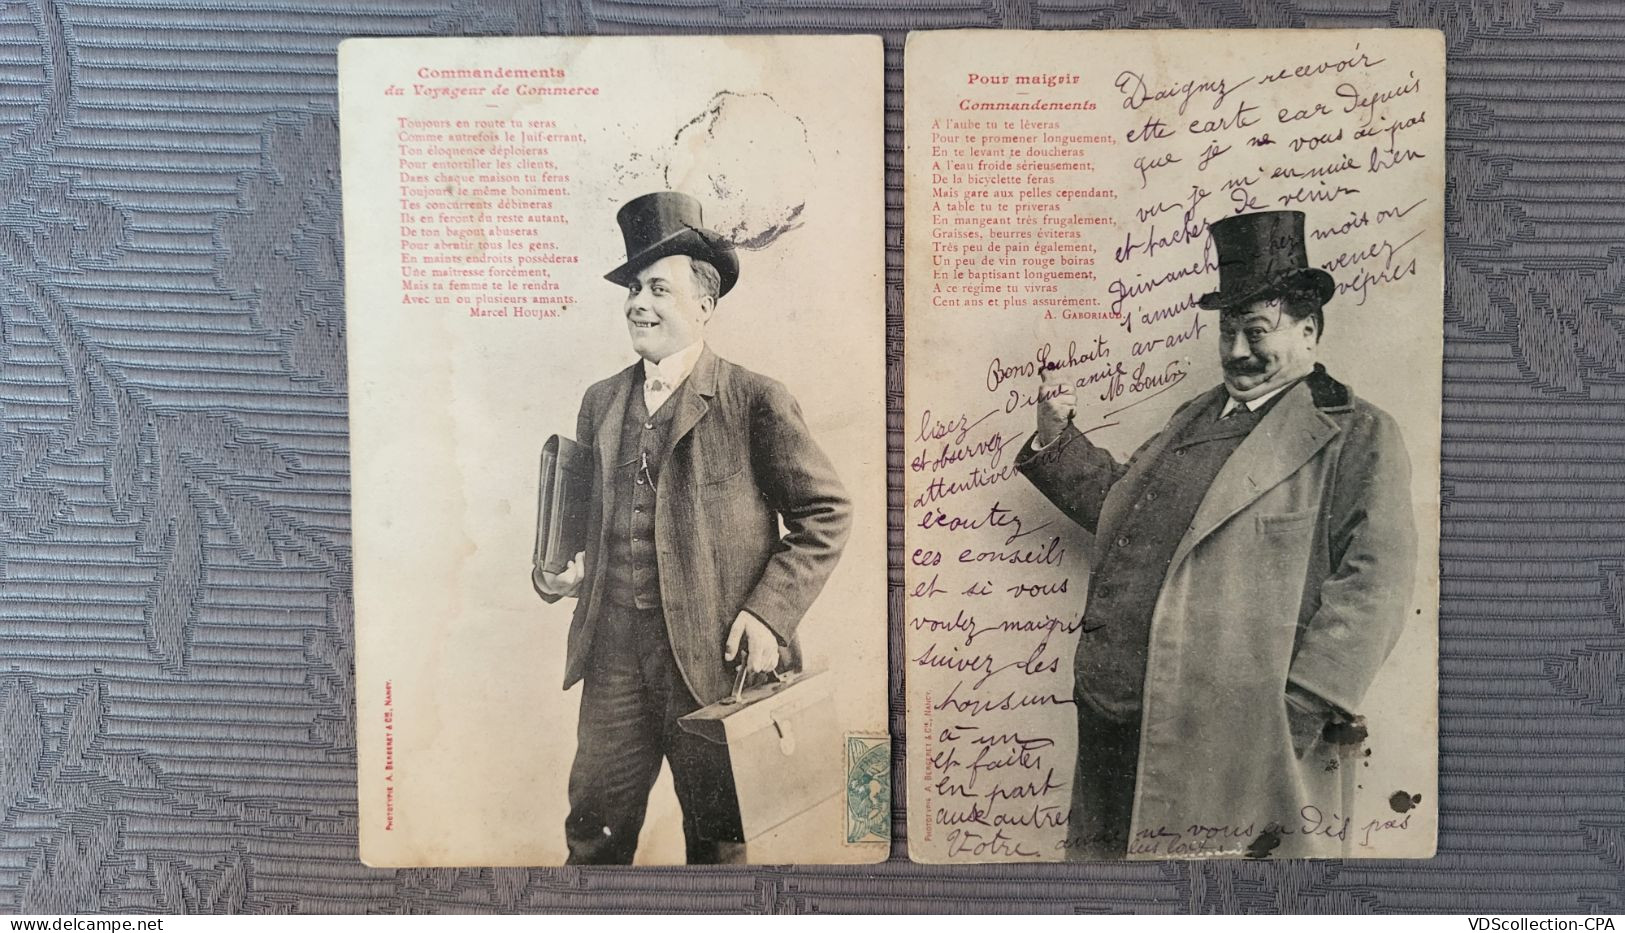 Commandements
du Voyageur de Commerce
Toujours en route tu seras
Comme autrefois le Juif-errant,
Ton éloquence déploieras
Pour entortiller les clients,
Dans chaque maison tu feras
Toujours le même boniment.
Tes concurrents débineras
Ils en feront du reste autant,
De ton bagout abuseras
Pour abrutir tous les gens.
En maints endroits possèderas
Une maîtresse forcément,
Mais ta femme te le rendra
Avec un ou plusieurs amants.
Marcel HOUJAN.
PHOTOTYPIE A. BERGERET & Cie, NANCY.
Pour maigrir
Commandements
A l'aube tu te lèveras
Pour te promener longuement,
En te levant te doucheras
A l'eau froide sérieusement,
De la bicyclette feras
Mais gare aux pelles cependant,
A table tu te priveras
En mangeant très frugalement,
Graisses, beurres éviteras
Très peu de pain également,
Un peu de vin rouge boiras
En le baptisant longuement,
A ce régime tu vivras
Cent ans et plus assurément.
A. GABORIAUD.
PHOTOTYPIE A. BERGERET & Cie, NANCY.
Daignez recevoir
cette carte car depuis
que je ne vous ai pas
vu je m'ennuie bien
et tachez de venir
Dimanche chez moi on
s'amusera venez
avant vépres
Bons Souhaits
d'une amie
M Louise
lisez
et observez
attentivement
écoutez
ces conseils
et si vous
voulez maigrir
suivez les
à un
et faites
en part
aux autres
Votre amie ne vous en dis pas
plus long.
VDScollection-CPA